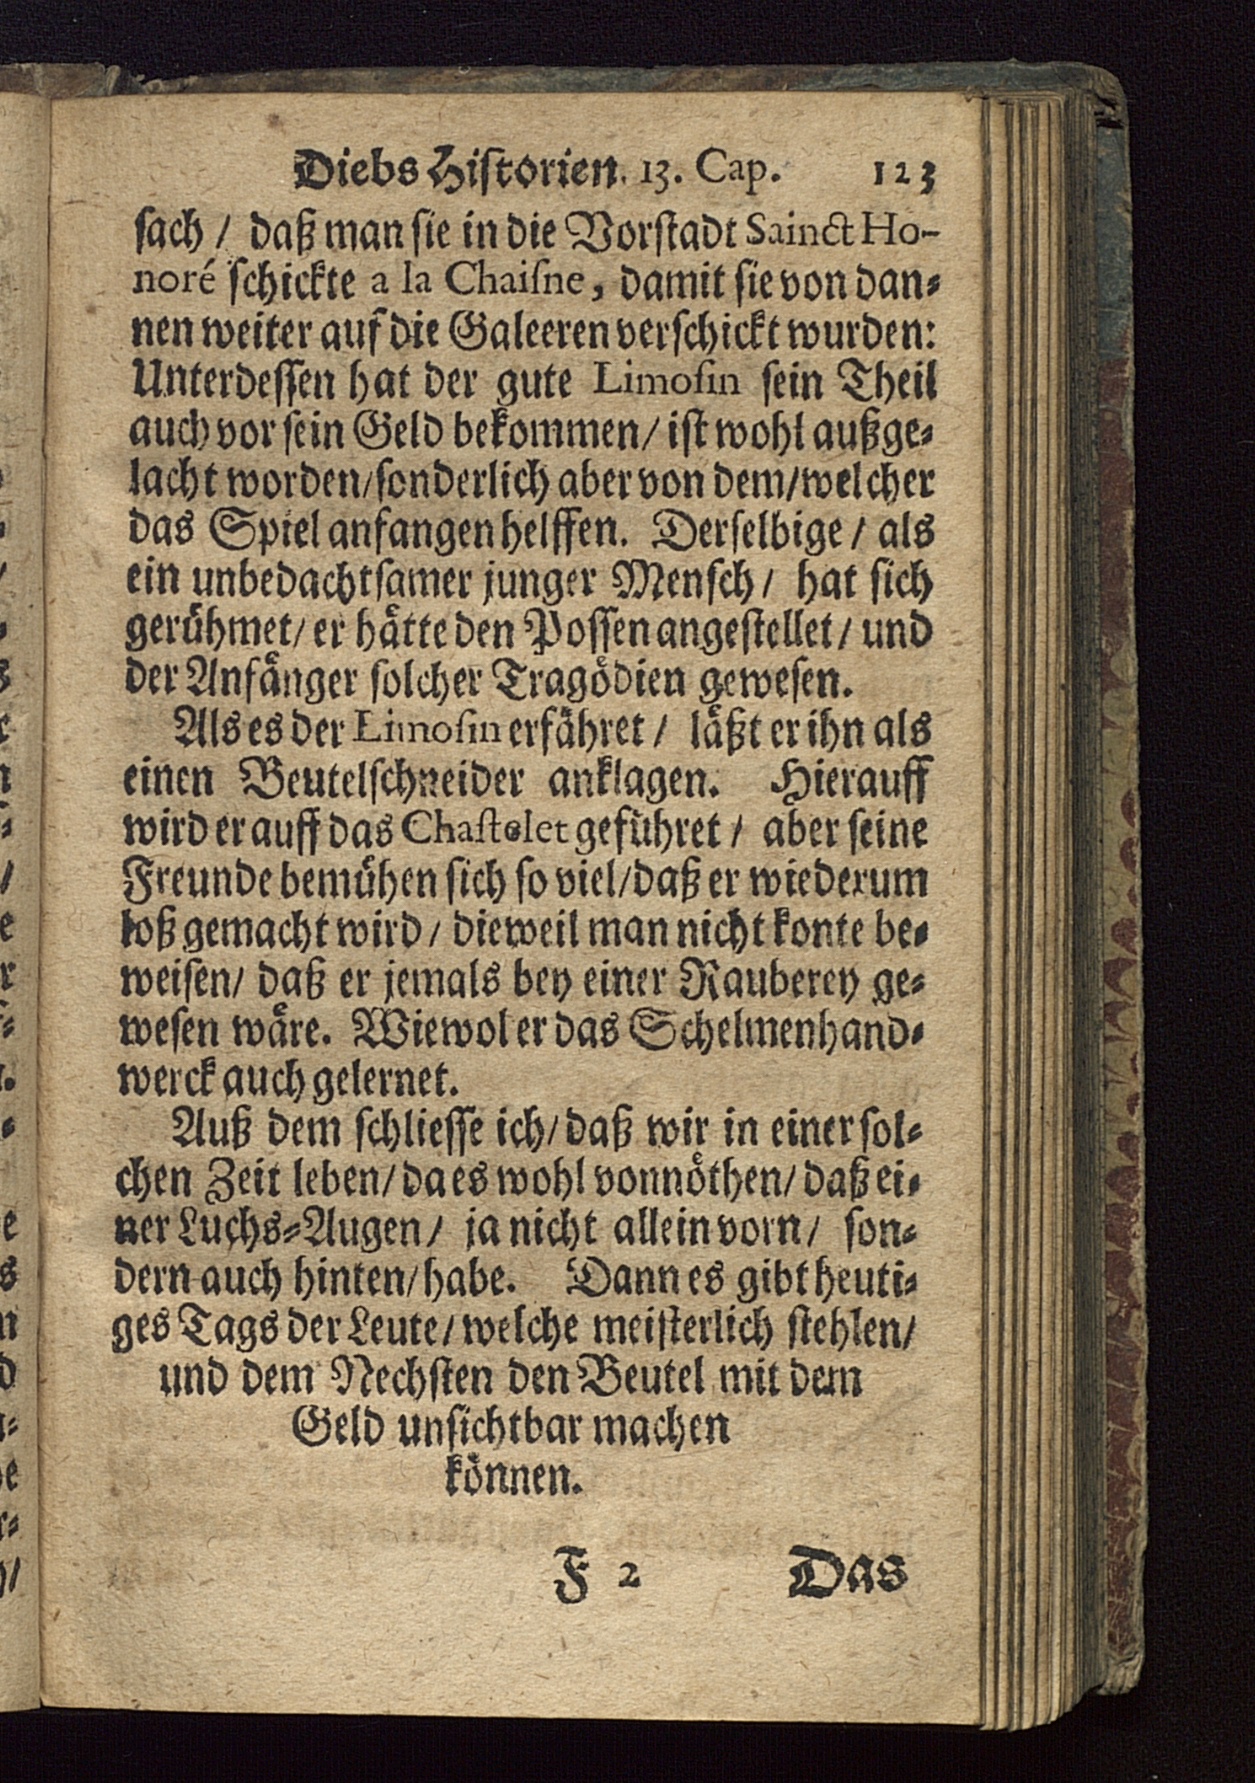 Diebs Historien. 13. Cap. 123
sach / daß man sie in die Vorstadt Sainct Ho-
noré schickte a la Chaiſne, damit sie von dan-
nen weiter auf die Galeeren verschickt wurden:
Unterdessen hat der gute Limoſin sein Theil
auch vor sein Geld bekommen / ist wohl außge-
lacht worden / sonderlich aber von dem / welcher
das Spiel anfangen helffen. Derselbige / als
ein unbedachtsamer junger Mensch / hat sich
gerühmet / er hätte den Possen angestellet / und
der Anfänger solcher Tragödien gewesen.
Als es der Limoſin erfähret / läßt er ihn als
einen Beutelschneider anklagen. Hierauff
wird er auff das Chaſtelet geführet / aber seine
Freunde bemühen sich so viel / daß er wiederum
loß gemacht wird / dieweil man nicht konte be-
weisen / daß er jemals bey einer Rauberey ge-
wesen wäre. Wiewol er das Schelmenhand-
werck auch gelernet.
Auß dem schliesse ich / daß wir in einer sol-
chen Zeit leben / da es wohl vonnöthen / daß ei-
ner Luchs-Augen / ja nicht allein vorn / son-
dern auch hinten / habe. Dann es gibt heuti-
ges Tags der Leute / welche meisterlich stehlen /
und dem Nechsten den Beutel mit dem
Geld unsichtbar machen
können.
F 2 Das